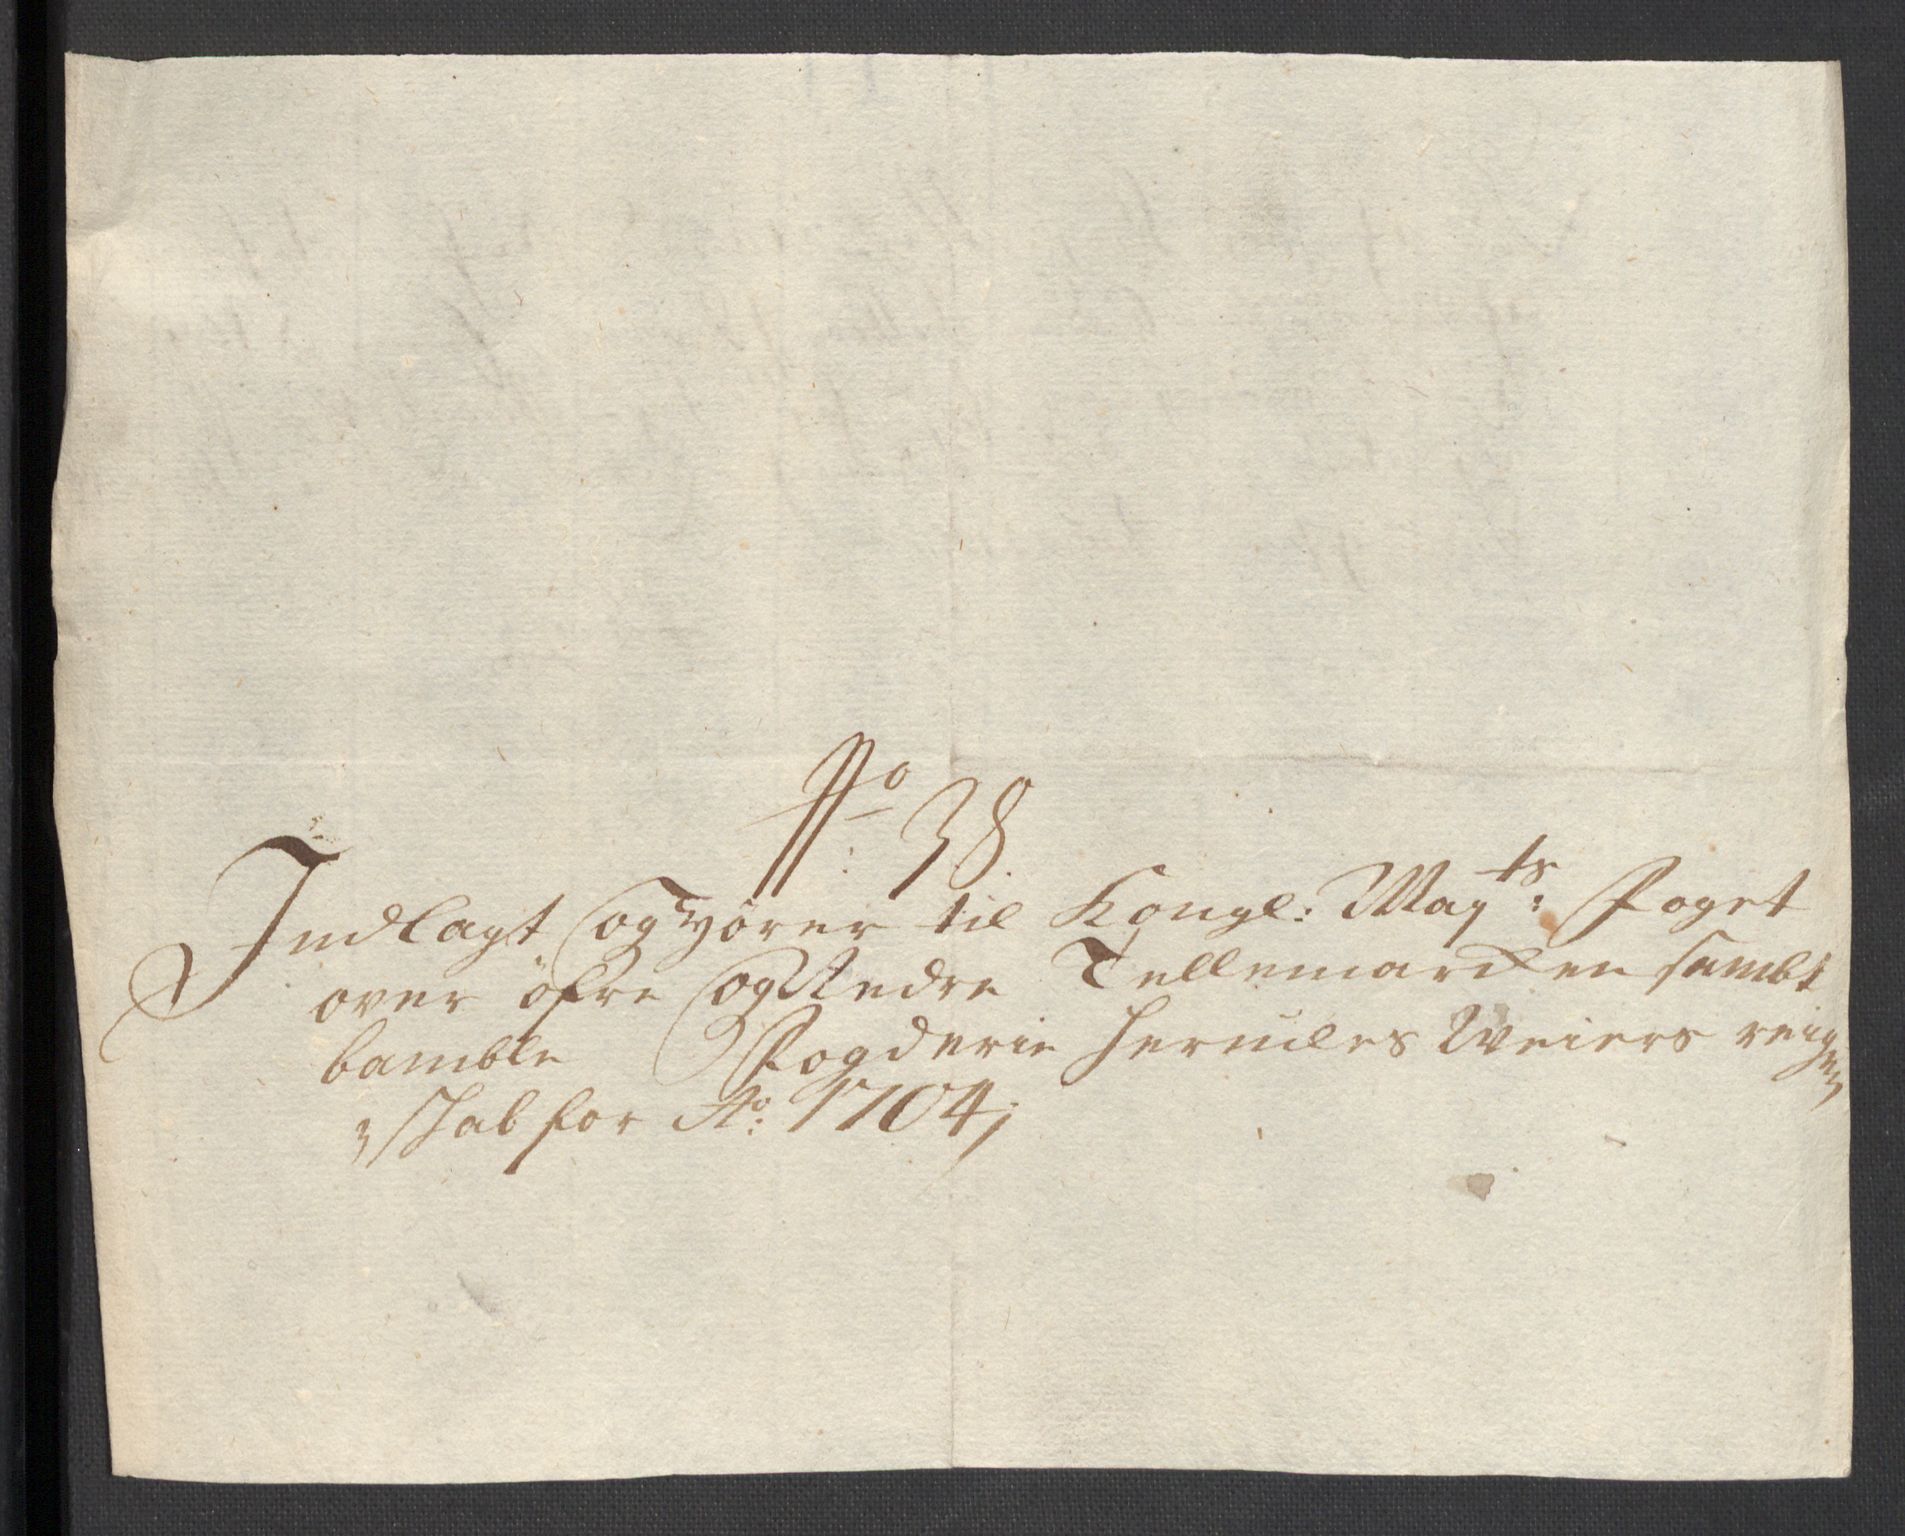 No 38.
Indlagt og hörer til Kongl: Mayts: Foget
over öfre og Nedre Tellemarcken sambt
bamble Fogderie Hermles Weiers reigen
skab for Ao: 1704